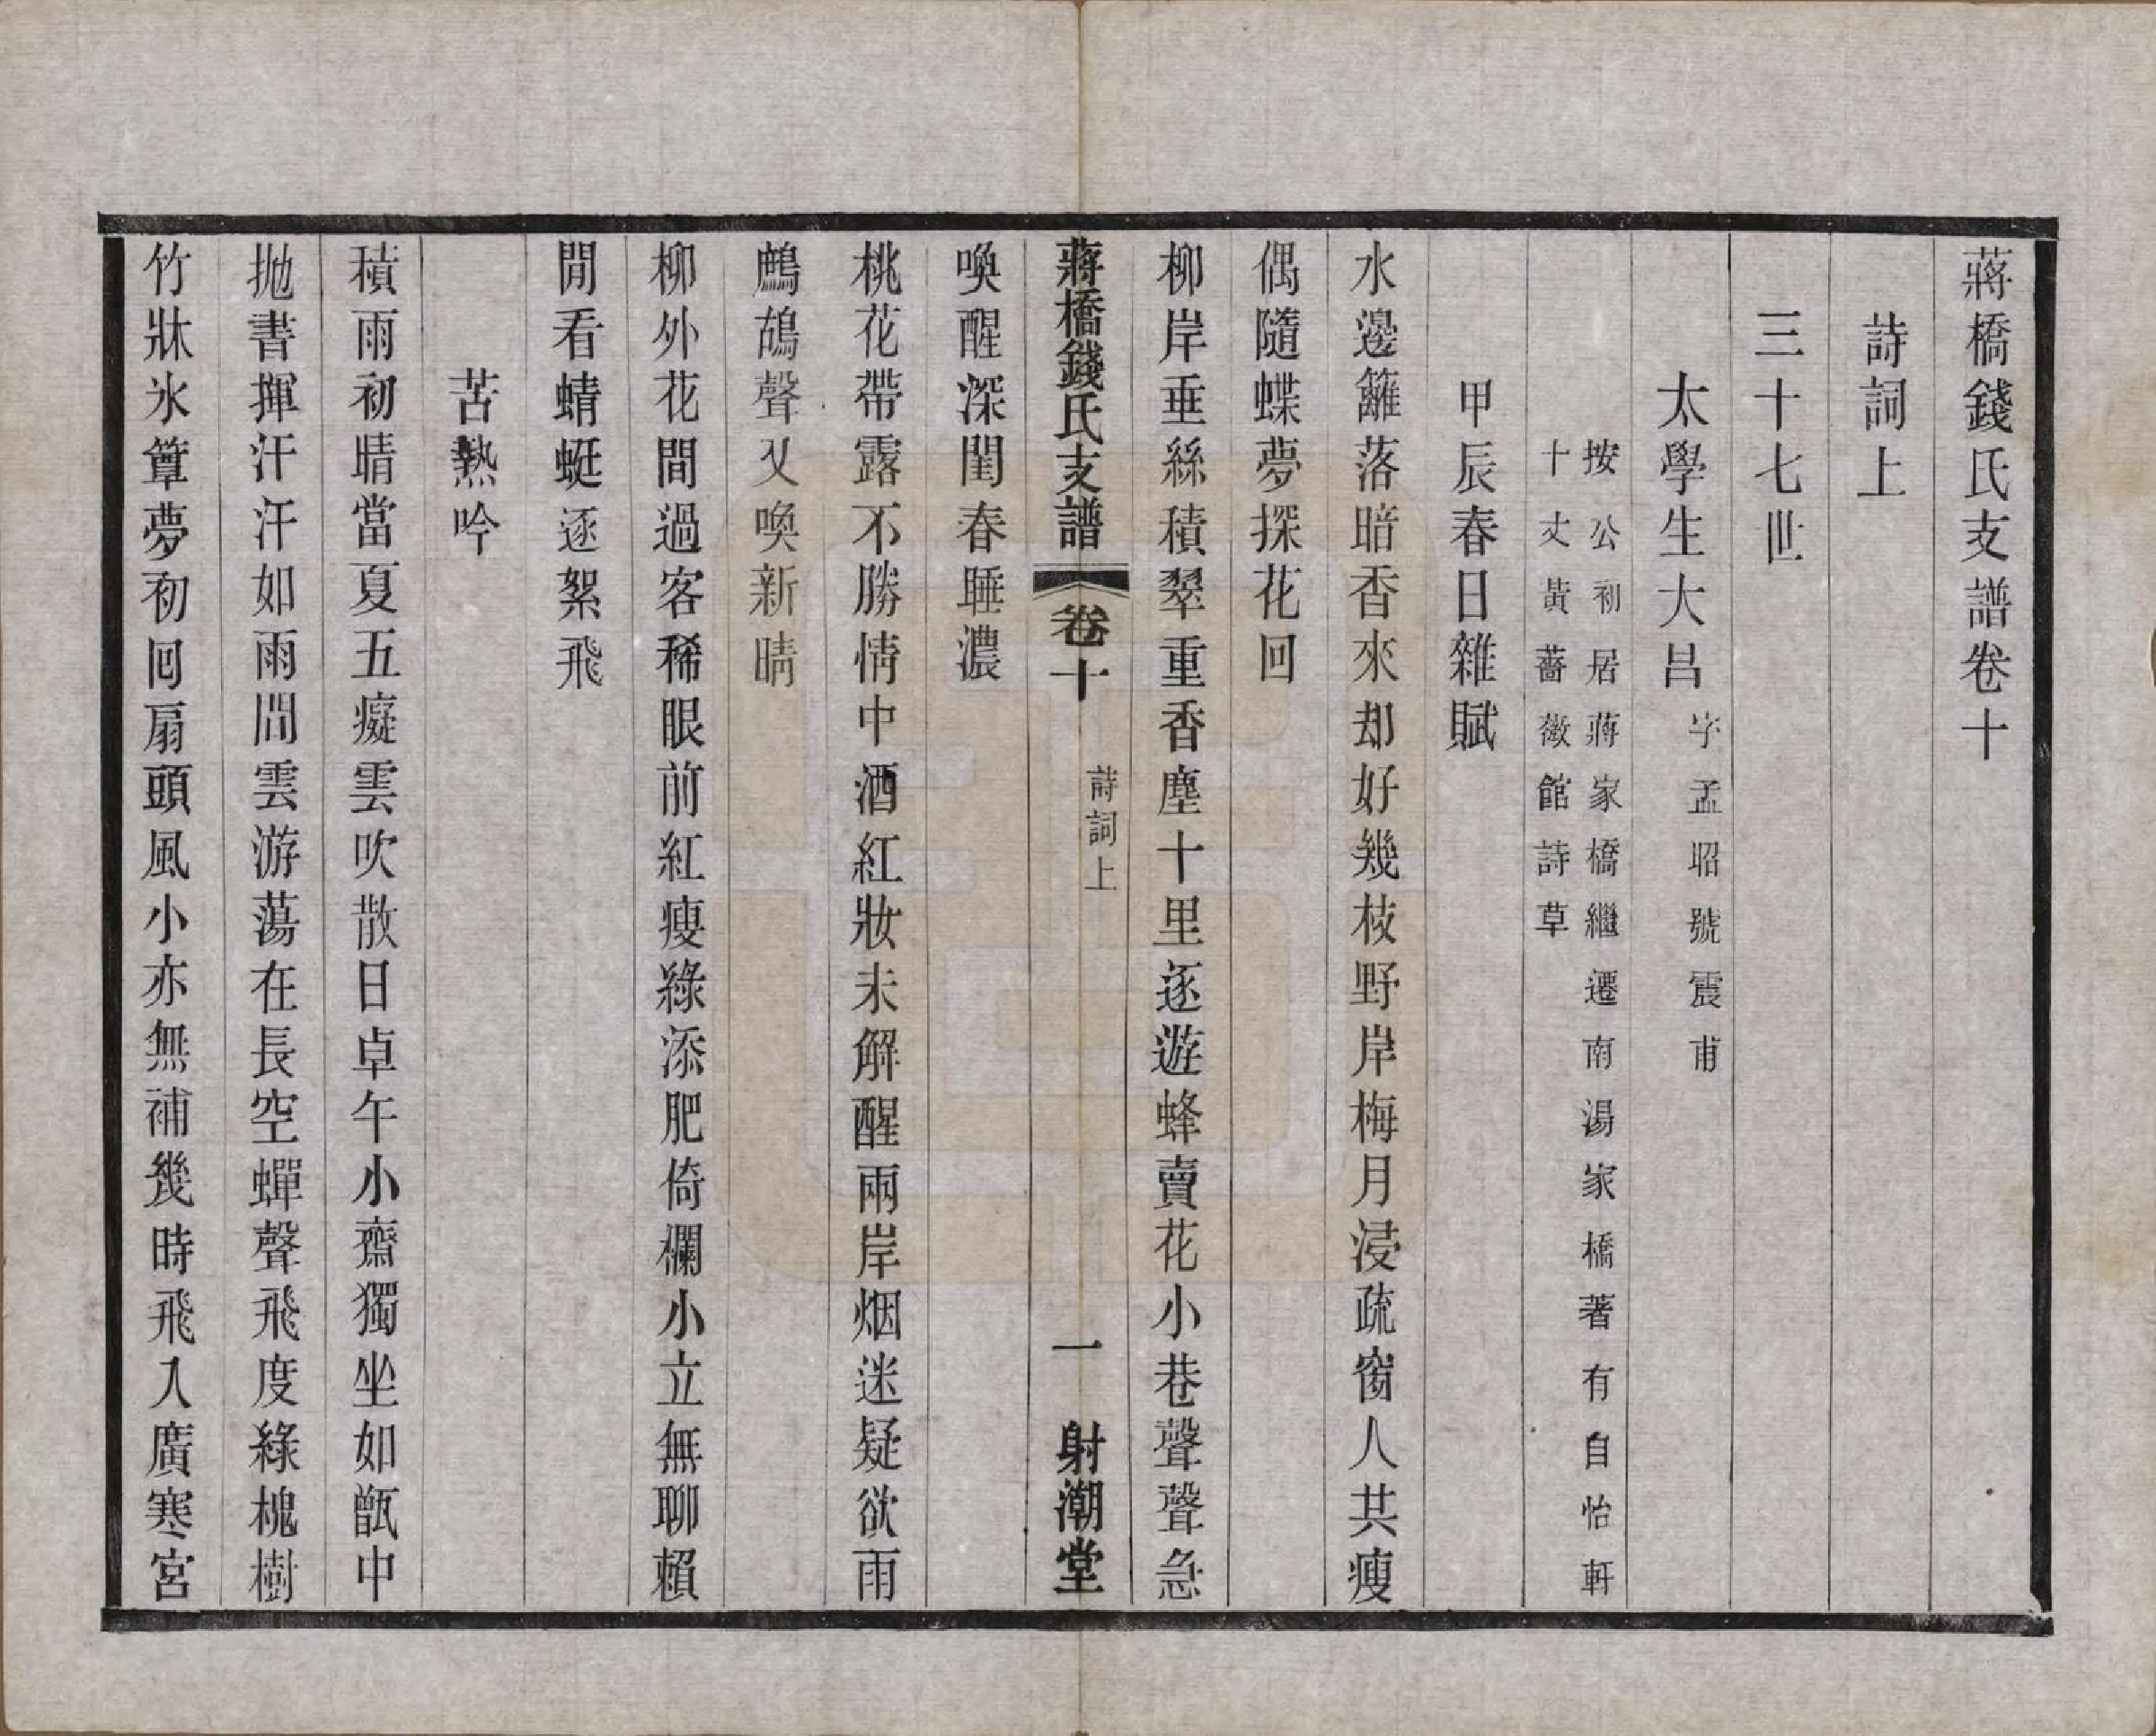 蔣橋錢氏支譜卷十
詩詞上
三十七世
太學生大昌字孟昭號震甫
按公初居蔣家橋繼遷南湯家橋著有自怡軒
十丈黃薔薇館詩草
甲辰春日雜賦
水邊籬落暗香來却好幾枝野岸梅月浸疏窗人共瘦
偶隨蝶夢探花回
柳岸垂絲積翠重香塵十里逐遊蜂賣花小巷聲聲急
蔣橋錢氏支譜 卷十 詩詞上 一 射潮堂
喚醒深閨春睡濃
桃花帶露不勝情中酒紅妝未解醒兩岸烟迷疑欲雨
鷓鴣聲又喚新晴
柳外花間過客稀眼前紅瘦綠添肥倚欄小立無聊賴
閒看蜻蜓逐絮飛
苦熱吟
積雨初晴當夏五癡雲吹散日卓午小齋獨坐如甑中
拋書揮汗汗如雨問雲游蕩在長空蟬聲飛度綠槐樹
竹牀氷簟夢初囘扇頭風小亦無補幾時飛入廣寒宮